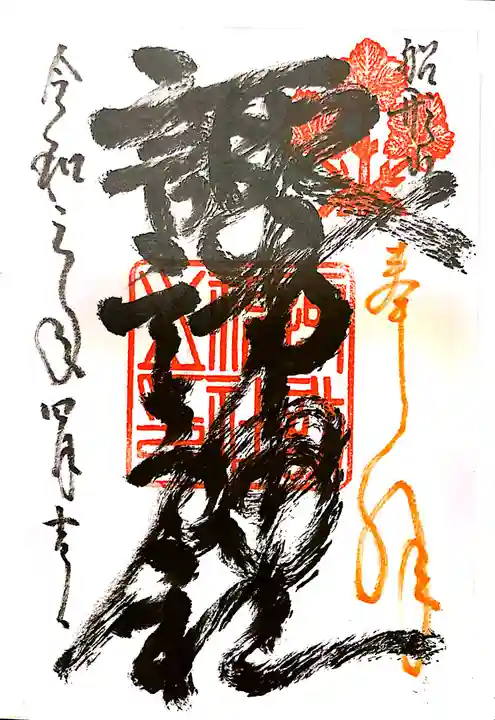 船形
奉拝
諏訪神社
令和三年四月吉日